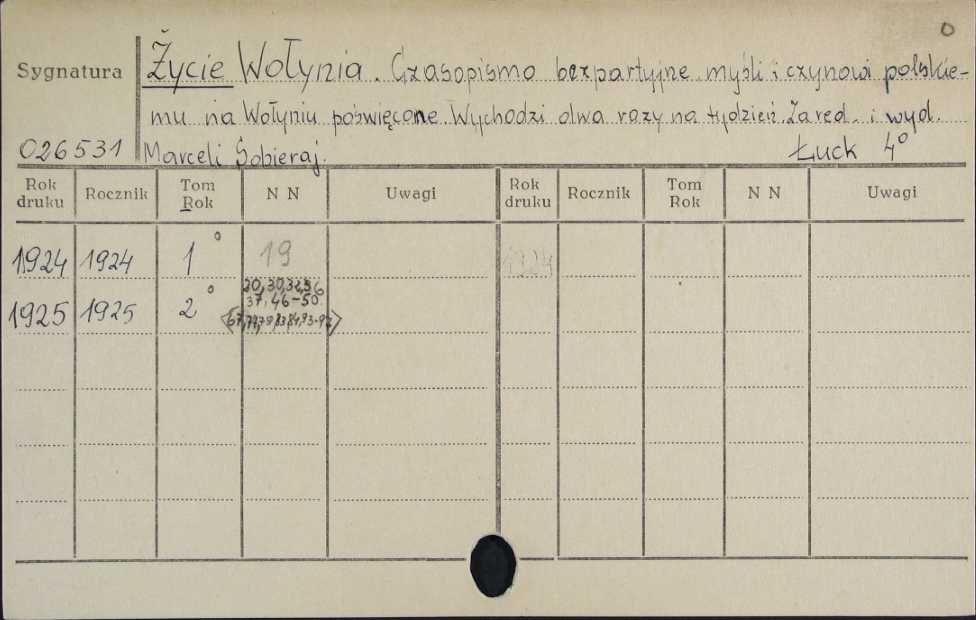 0
Życie Wołynia. Czasopismo bezpartyjne myśli i czynowi polskie-
Sygnatura
mu na Wołyniu poświęcone. Wychodzi dwa razy na tydzień. Za red. i wyd.
026531 Marceli Sobieraj. Łuck 4°
Rok druku Rocznik Tom Rok N N Uwagi Rok druku Rocznik Tom Rok N N Uwagi
1924 1924 1° 19 1924
20,30,32,36
1925 1925 2° 37,46-50